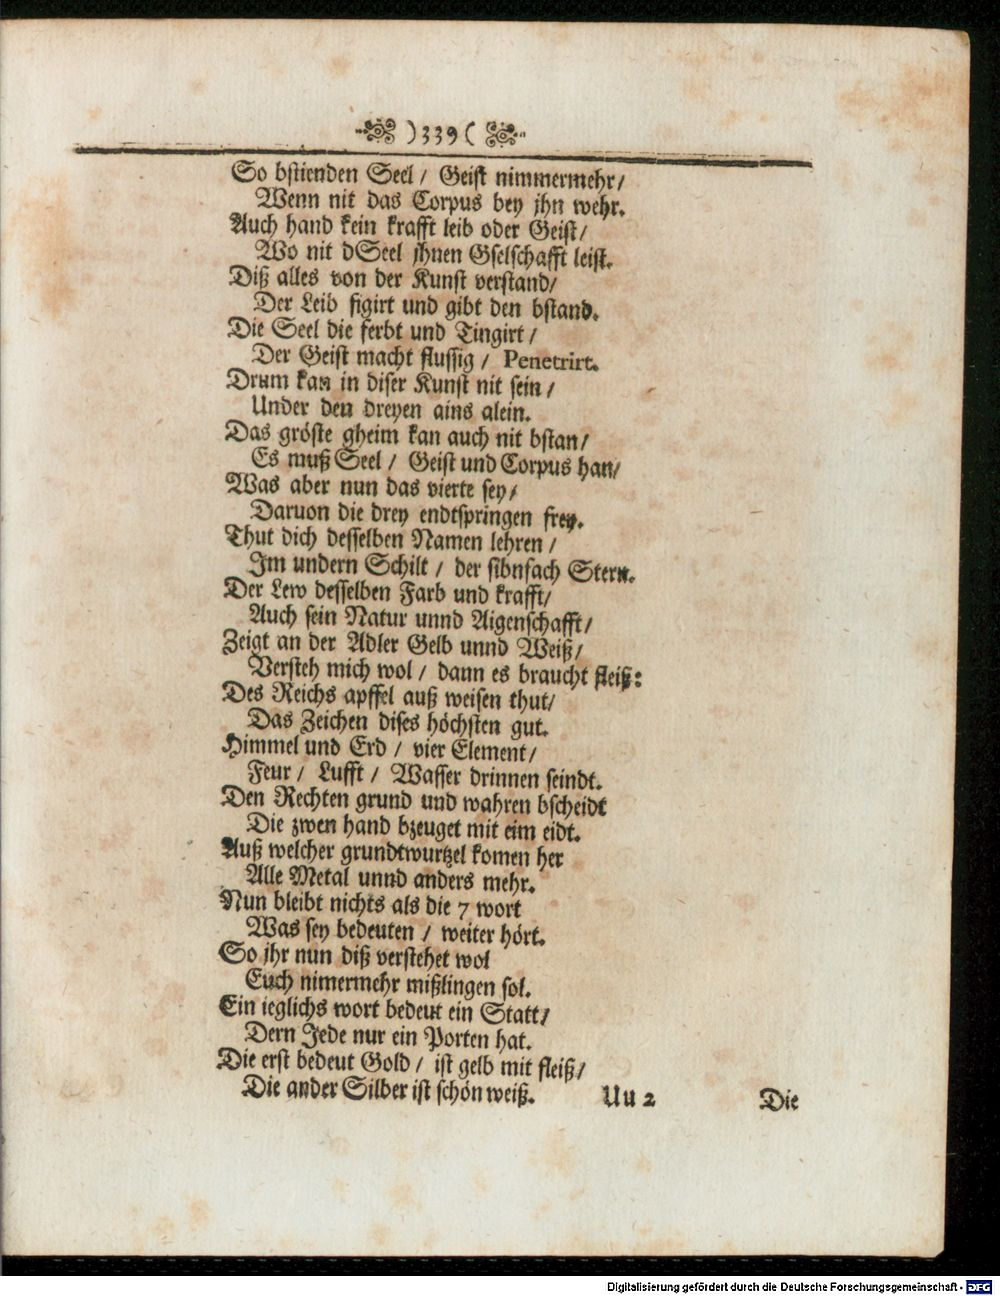 )339(
So bstienden Seel / Geist nimmermehr /
Wenn nit das Corpus bey jhn wehr.
Auch hand kein krafft leib oder Geist /
Wo nit dSeel jhnen Gselschafft leist.
Diß alles von der Kunst verstand /
Der Leib figirt und gibt den bstand.
Die Seel die ferbt und Tingirt /
Der Geist macht flussig / Penetrirt.
Drum kan in diser Kunst nit sein /
Under den dreyen ains alein.
Das gröste gheim kan auch nit bstan /
Es muß Seel / Geist und Corpus han /
Was aber nun das vierte sey /
Daruon die drey endtspringen frey.
Thut dich desselben Namen lehren /
Im undern Schilt / der sibnfach Stern.
Der Lew desselben Farb und krafft /
Auch sein Natur unnd Aigenschafft /
Zeigt an der Adler Gelb unnd Weiß /
Versteh mich wol / dann es braucht fleiß:
Des Reichs apffel auß weisen thut /
Das Zeichen dises höchsten gut.
Himmel und Erd / vier Element /
Feur / Lufft / Wasser drinnen seindt.
Den Rechten grund und wahren bscheidt
Die zwen hand bzeuget mit eim eidt.
Auß welcher grundtwurtzel komen her
Alle Metal unnd anders mehr.
Nun bleibt nichts als die 7 wort
Was sey bedeuten / weiter hört.
So jhr nun diß verstehet wol
Euch nimermehr mißlingen sol.
Ein ieglichs wort bedeut ein Statt /
Dern Jede nur ein Porten hat.
Die erst bedeut Gold / ist gelb mit fleiß /
Die ander Silber ist schön weiß.
Uu 2 Die
Digitalisierung gefördert durch die Deutsche Forschungsgemeinschaft - DFG